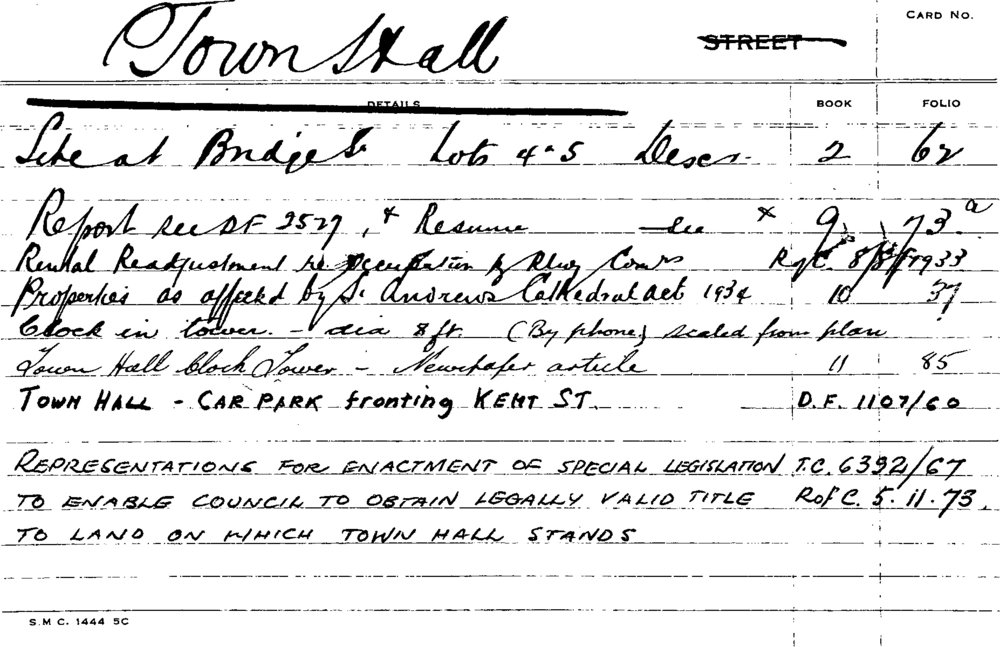 CARD NO.
Town Hall STREET
DETAILS BOOK FOLIO
Site at Bridge St Lots 4 & 5 Descr. 2 62
Report see DF 2527, & Resume see x 9 73a
Rental Readjustment re Occupation by Rlwy Comrs R of C. 1933
Properties as affected by St Andrews Cathedral Act 1934 10 37
Clock in tower. - dia 8 ft. (By phone) scaled from plan
Town Hall Clock Tower - Newspaper article 11 85
TOWN HALL - CAR PARK fronting KENT ST. D.F. 1107/60
REPRESENTATIONS FOR ENACTMENT OF SPECIAL LEGISLATION T.C. 6392/67
TO ENABLE COUNCIL TO OBTAIN LEGALLY VALID TITLE R of C. 5.11.73.
TO LAND ON WHICH TOWN HALL STANDS
S.M.C. 1444 5C